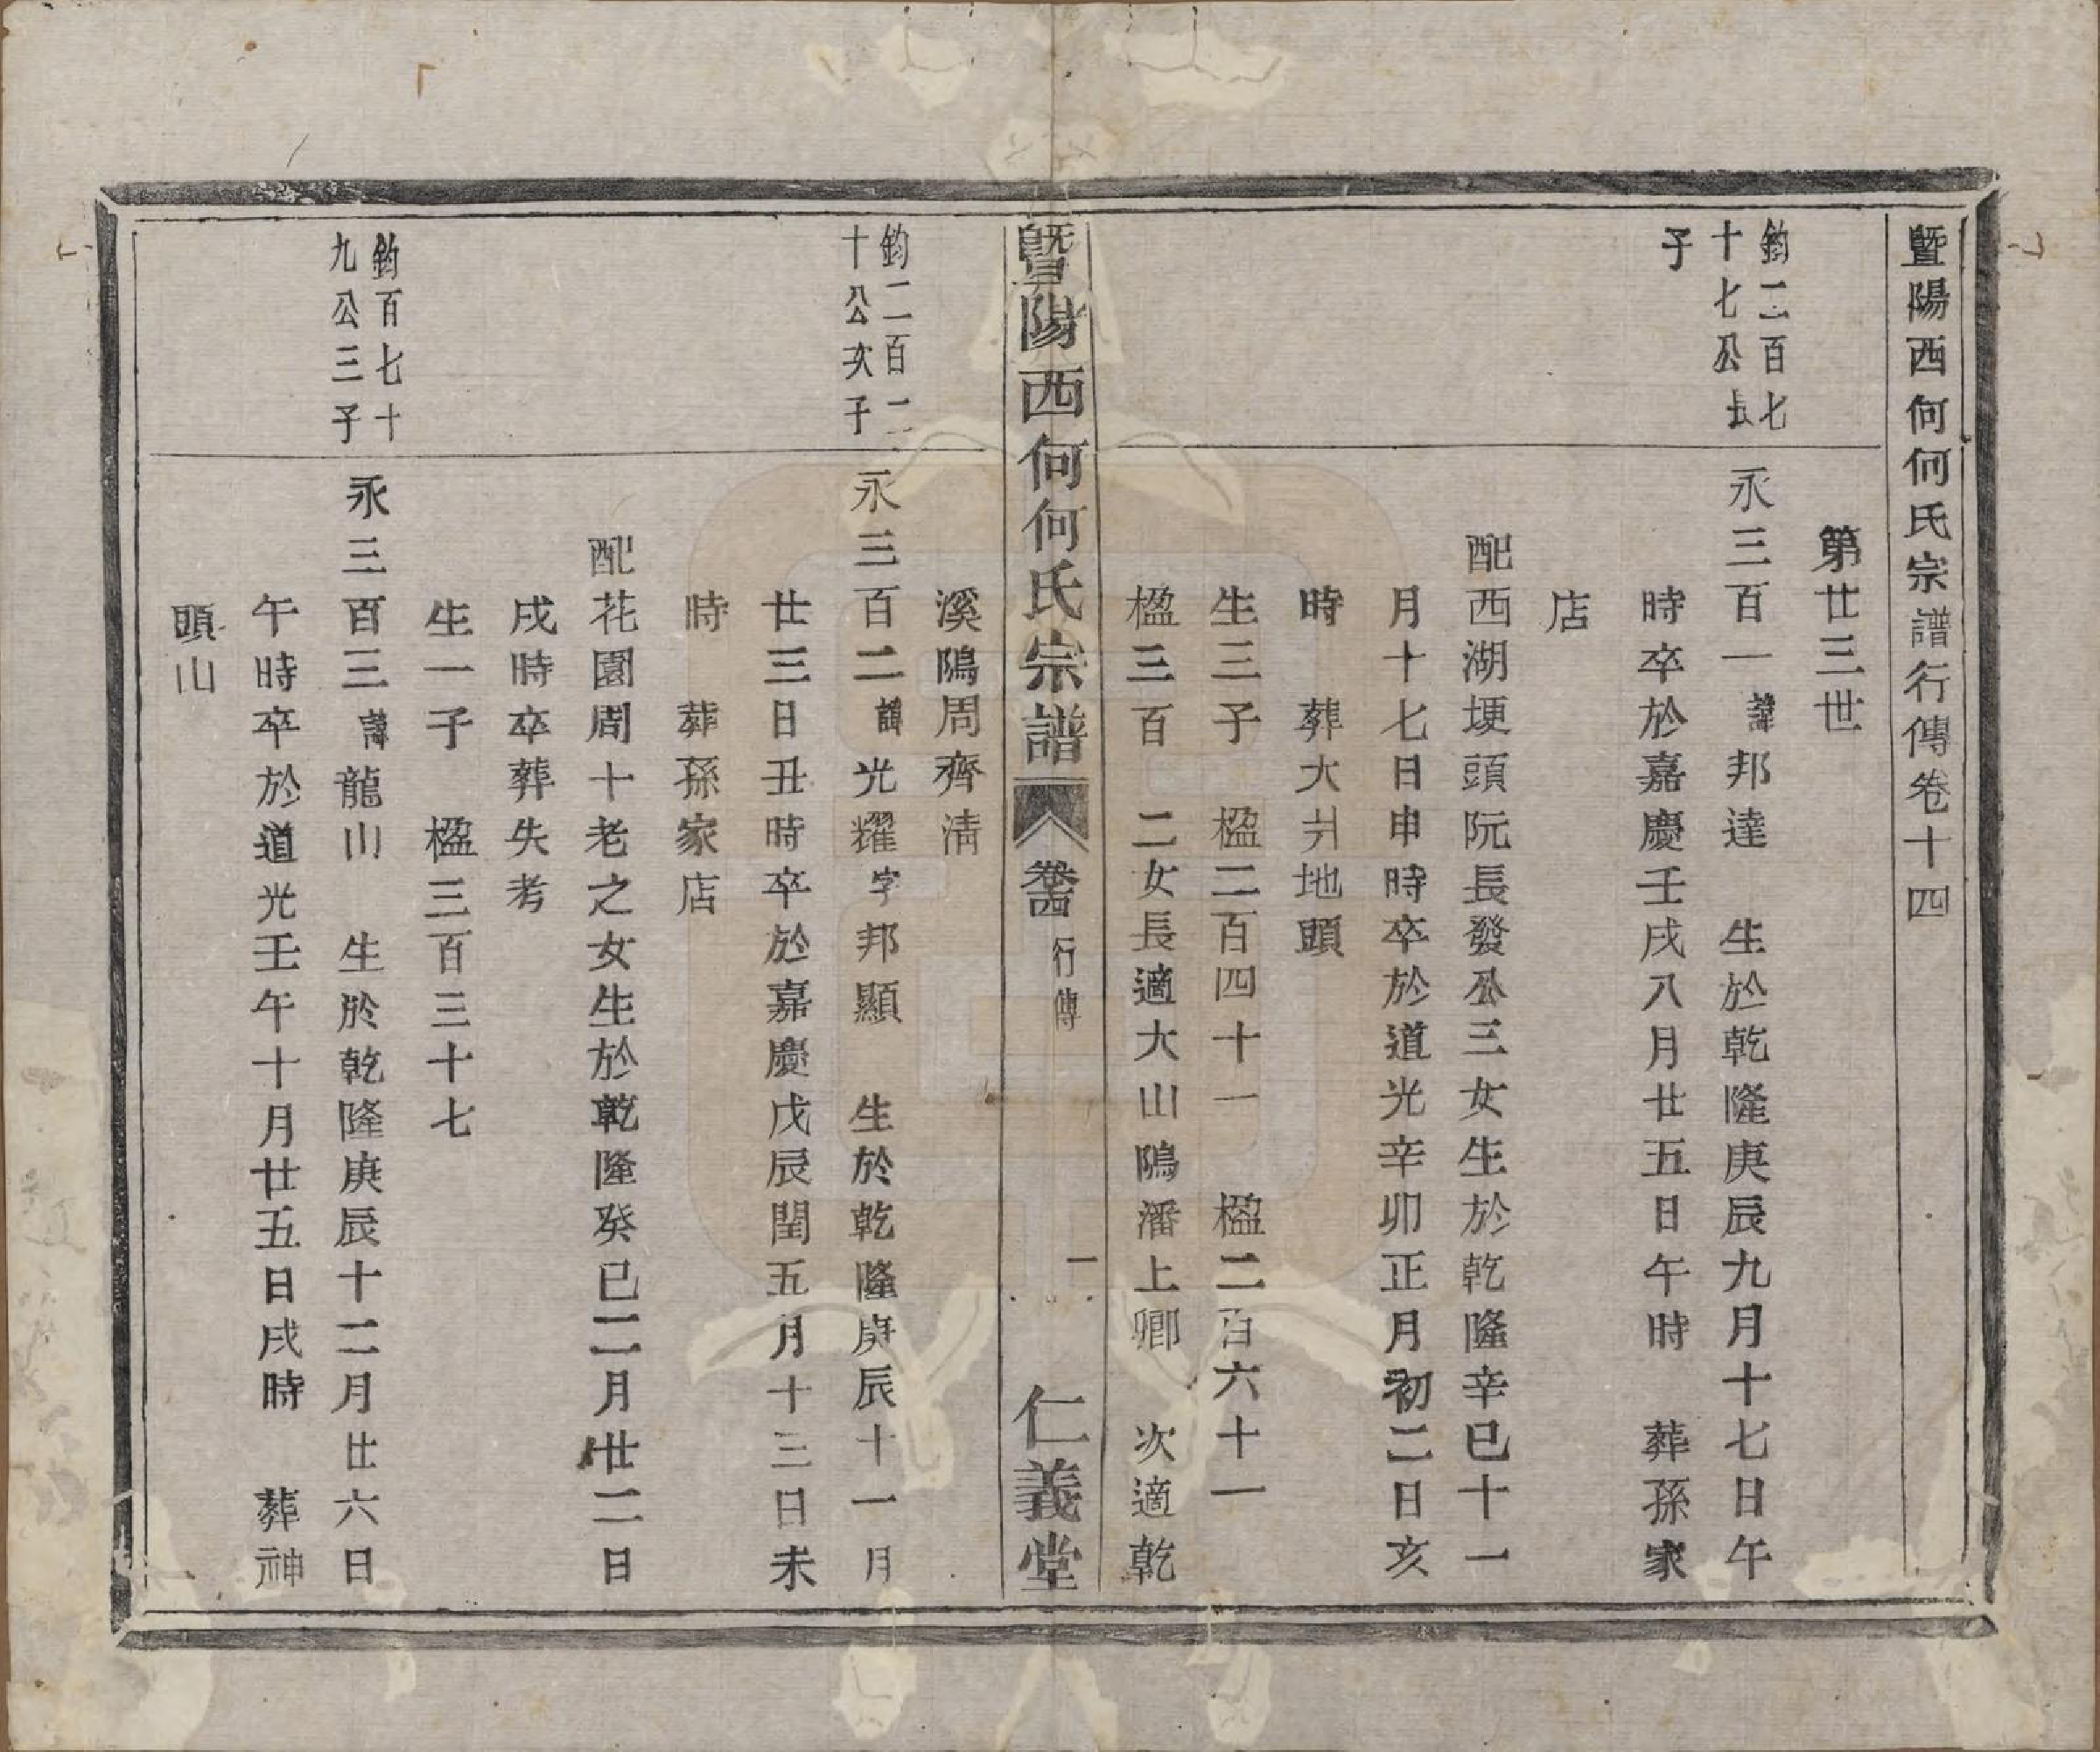 暨陽西何何氏宗譜行傳卷十四
第廿三世
鈞二百七
十七公長
子
永三百一諱邦達 生於乾隆庚辰九月十七日午
時卒於嘉慶壬戌八月廿五日午時 葬孫家
店
配西湖埂頭阮長發公三女生於乾隆辛巳十一
月十七日申時卒於道光辛卯正月初二日亥
時 葬大爿地頭
生三子 楹二百四十一 楹二百六十一
楹三百 二女長適大山隖潘上卿 次適乾
暨陽西何何氏宗譜 卷十四 行傳 一 仁義堂
溪隖周齊淸
鈞二百二
十公次子
永三百二諱光耀字邦顯 生於乾隆庚辰十一月
廿三日丑時卒於嘉慶戊辰閏五月十三日未
時 葬孫家店
配花園周十老之女生於乾隆癸巳二月廿二日
戌時卒葬失考
生一子 楹三百三十七
鈞百七十
九公三子
永三百三諱龍山 生於乾隆庚辰十二月廿六日
午時卒於道光壬午十月廿五日戌時 葬神
頭山